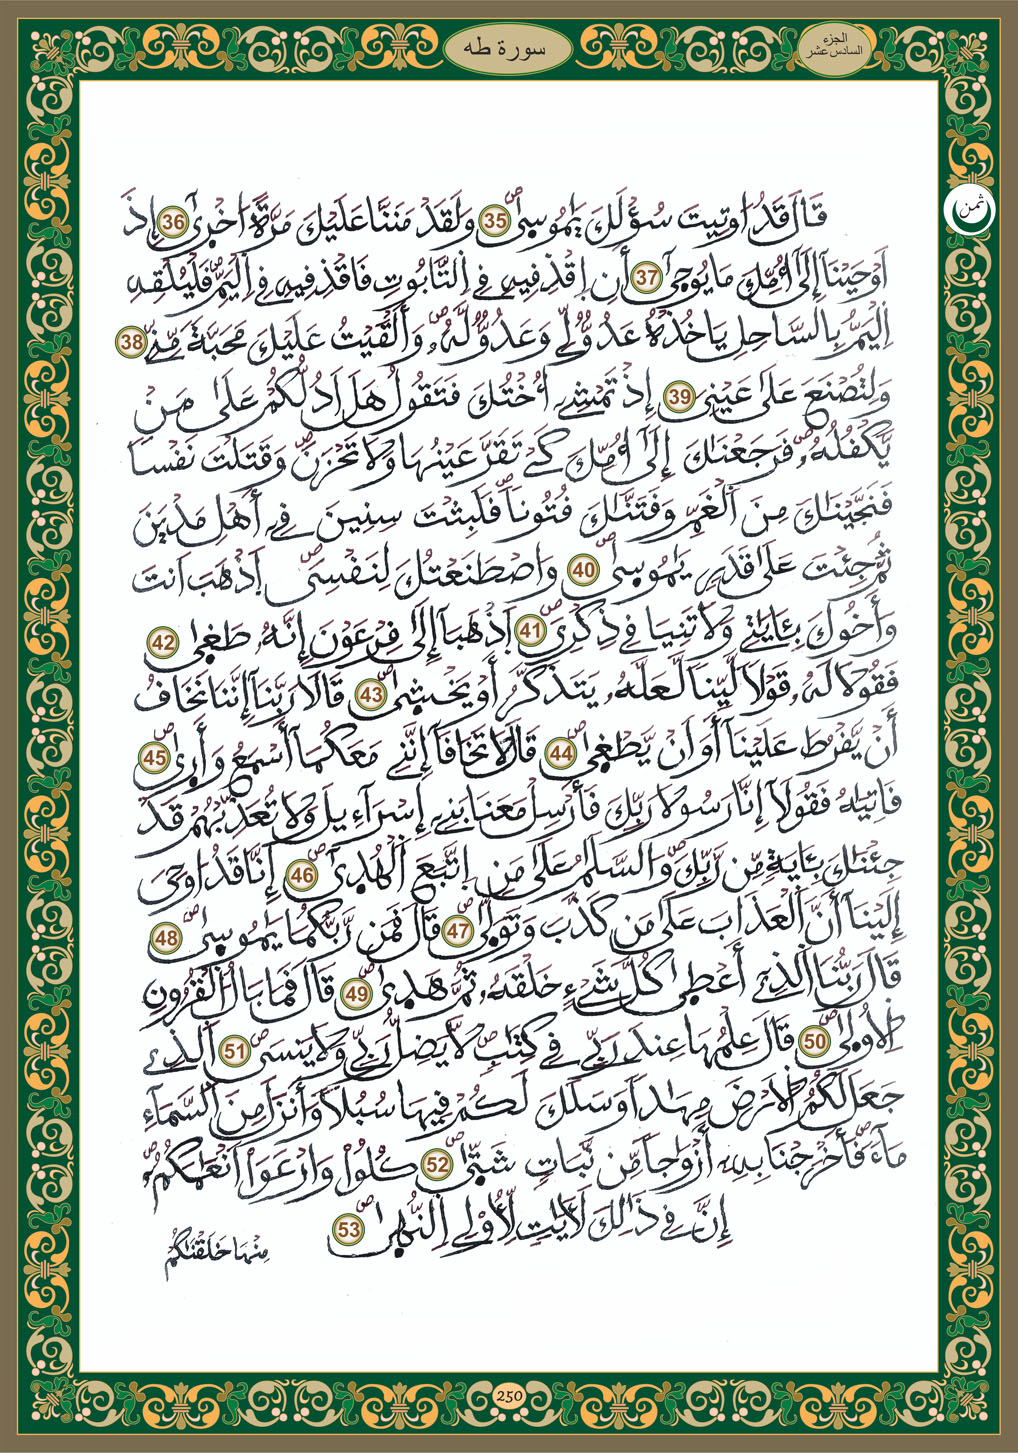 سورة طه
الجزء
السادس عشر
ثمن
قَالَ قَدُ اوتِيتَ سُؤْلَكَ يَٰمُوسِىٰۖ 35 وَلَقَدْ مَنَنَّا عَلَيْكَ مَرَّةً اُخْرِىٰٓ 36 إِذَ
اَوْحَيْنَآ إِلَىٰٓ أُمِّكَ مَا يُوحِىٰٓ 37 أَنِ اِقْذِفِيهِ فِے اِ۬لتَّابُوتِ فَاقْذِفِيهِ فِے اِ۬لْيَمِّ فَلْيُلْقِهِ
اِ۬لْيَمُّ بِالسَّاحِلِ يَاخُذْهُ عَدُوّٞ لِّے وَعَدُوّٞ لَّهُۥۖ وَأَلْقَيْتُ عَلَيْكَ مَحَبَّةٗ مِّنِّےۖ 38
وَلِتُصْنَعَ عَلَىٰ عَيْنِىَ 39 إِذْ تَمْشِےٓ أُخْتُكَ فَتَقُولُ هَلَ اَدُلُّكُمْ عَلَىٰ مَنْ
يَّكْفُلُهُۥۖ فَرَجَعْنَٰكَ إِلَىٰٓ أُمِّكَ كَےْ تَقَرَّ عَيْنُهَا وَلَا تَحْزَنَۖ وَقَتَلْتَ نَفْساٗ
فَنَجَّيْنَٰكَ مِنَ اَ۬لْغَمِّ وَفَتَنَّٰكَ فُتُوناٗۖ فَلَبِثْتَ سِنِينَ فِےٓ أَهْلِ مَدْيَنَ
ثُمَّ جِئْتَ عَلَىٰ قَدَرٖ يَٰمُوسِىٰۖ 40 وَاصْطَنَعْتُكَ لِنَفْسِىَۖ اَ۪ذْهَبَ اَنتَ
وَأَخُوكَ بِـَٔايَٰتِے وَلَا تَنِيَا فِے ذِكْرِىَۖ 41 اَ۪ذْهَبَآ إِلَىٰ فِرْعَوْنَ إِنَّهُۥ طَغِىٰۖ 42
فَقُولَا لَهُۥ قَوْلاٗ لَّيِّناٗ لَّعَلَّهُۥ يَتَذَكَّرُ أَوْ يَخْشِىٰۖ 43 قَالَا رَبَّنَآ إِنَّنَا نَخَافُ
أَنْ يَّفْرُطَ عَلَيْنَآ أَوَ اَنْ يَّطْغِىٰۖ 44 قَالَ لَا تَخَافَآ إِنَّنِے مَعَكُمَآ أَسْمَعُ وَأَرِىٰۖ 45
فَاتِيَٰهُ فَقُولَآ إِنَّا رَسُولَا رَبِّكَ فَأَرْسِلْ مَعَنَا بَنِےٓ إِسْرَآءِيلَ وَلَا تُعَذِّبْهُمْ قَدْ
جِئْنَٰكَ بِـَٔايَةٖ مِّن رَّبِّكَۖ وَالسَّلَٰمُ عَلَىٰ مَنِ اِ۪تَّبَعَ اَ۬لْهُدِىٰٓۖ 46 إِنَّا قَدُ اوحِىَ
إِلَيْنَآ أَنَّ اَ۬لْعَذَابَ عَلَىٰ مَن كَذَّبَ وَتَوَلِّىٰۖ 47 قَالَ فَمَن رَّبُّكُمَا يَٰمُوسِىٰۖ 48
قَالَ رَبُّنَا اَ۬لذِےٓ أَعْطِىٰ كُلَّ شَےْءٍ خَلْقَهُۥ ثُمَّ هَدِىٰۖ 49 قَالَ فَمَا بَالُ اُ۬لْقُرُونِ
اِ۬لُاولِىٰۖ 50 قَالَ عِلْمُهَا عِندَ رَبِّے فِے كِتَٰبٖۖ لَّا يَضِلُّ رَبِّے وَلَا يَنسَىۖ 51 اَ۬لذِے
جَعَلَ لَكُمُ اُ۬لَارْضَ مِهَٰداٗ وَسَلَكَ لَكُمْ فِيهَا سُبُلاٗ وَأَنزَلَ مِنَ اَ۬لسَّمَآءِ
مَآءٗۖ فَأَخْرَجْنَا بِهِۦٓ أَزْوَٰجاٗ مِّن نَّبَاتٖ شَتِّىٰۖ 52 كُلُواْ وَارْعَوَاْ اَنْعَٰمَكُمُۥٓۖ
إِنَّ فِے ذَٰلِكَ لَأٓيَٰتٖ لِّأُوْلِے اِ۬لنُّهِىٰۖ 53
مِنْهَا خَلَقْنَٰكُمْ
250